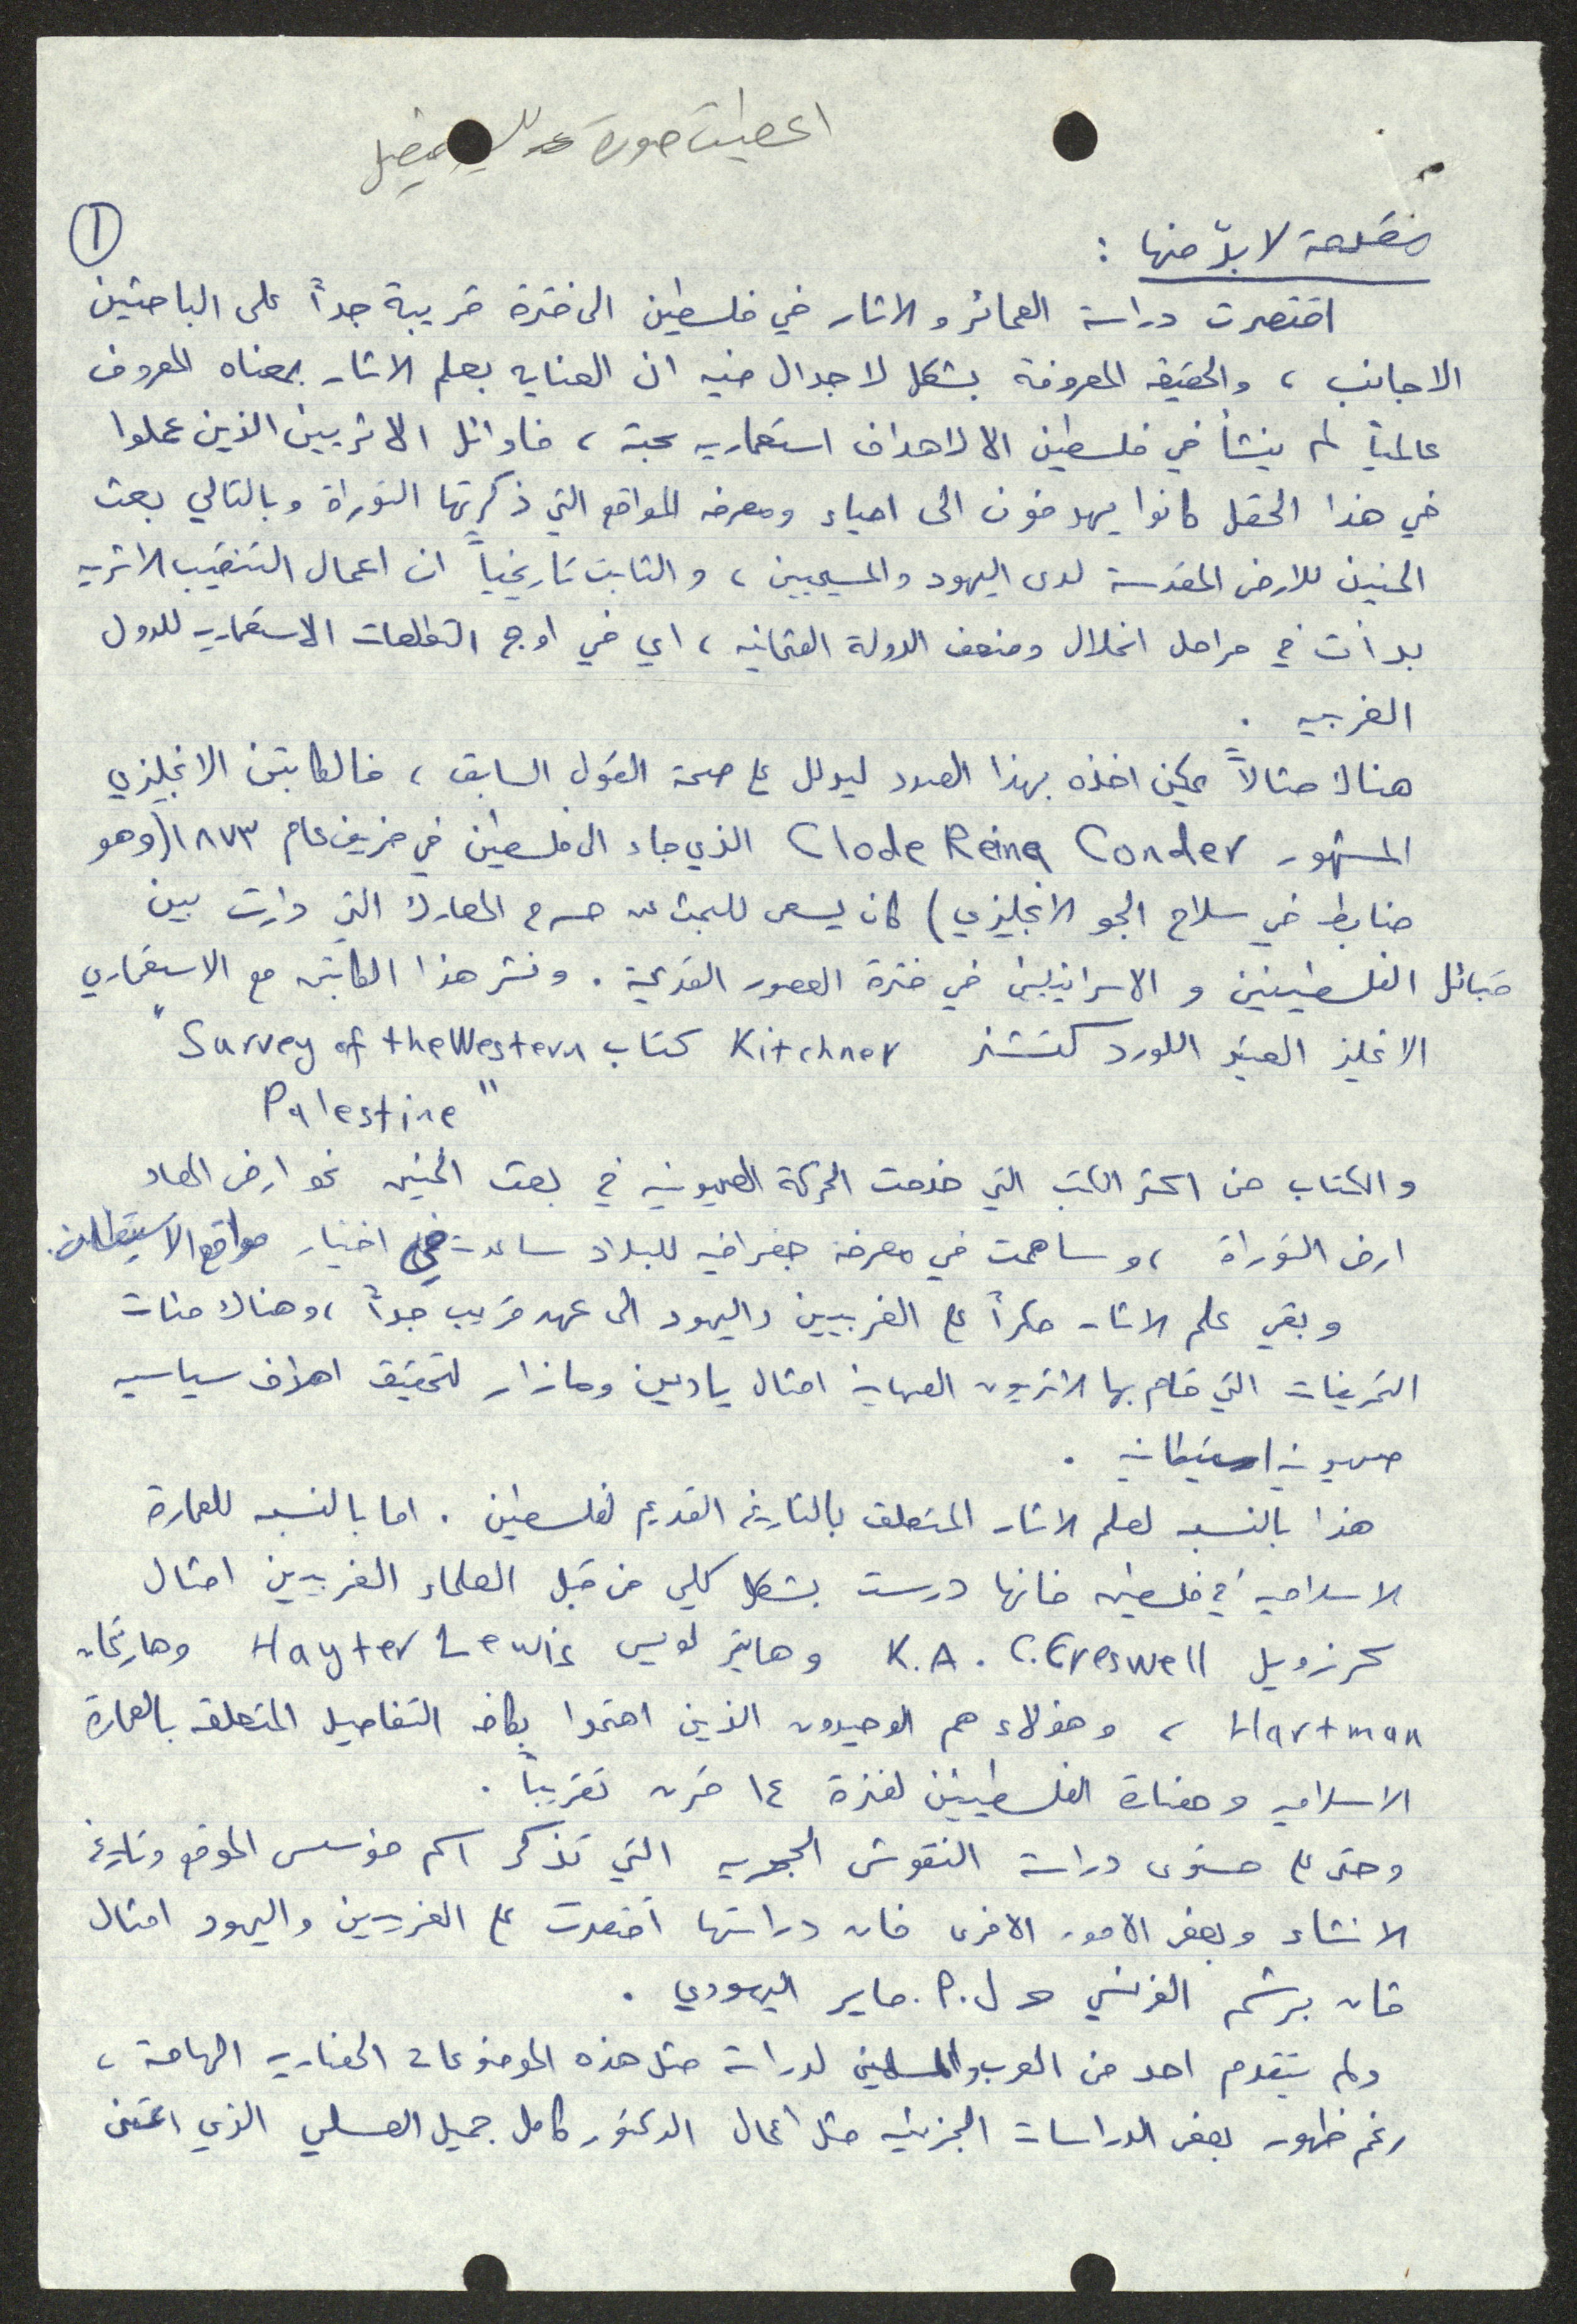 اعطيت صورة
①
مقدمة لا بدّ منها :
اقتصرت دراسة العمائر والاثار في فلسطين الى فترة قريبة جداً على الباحثين
الاجانب ، والحقيقه المعروفة بشكل لا جدال فيه ان العنايه بعلم الاثار بمعناه المعروف
عالمياً لم ينشأ في فلسطين الا لاهداف استعماريه بحتة ، فاوائل الاثريين الذين عملوا
في هذا الحقل كانوا يهدفون الى احياء ومعرفه المواقع التي ذكرتها التوراة وبالتالي بعث
الحنين للارض المقدسة لدى اليهود والمسيحيين ، والثابت تاريخياً ان اعمال التنقيب الاثريه
بدأت في مراحل انحلال وضعف الدولة العثمانيه ، اي في اوج التطلعات الاستعماريه للدول
الغربيه .
هناك مثالاً يمكن اخذه بهذا الصدد ليدلل على صحة القول السابق ، فالكابتن الانجليزي
المشهور Clode Reina Conder الذي جاء الى فلسطين في خريف عام ١٨٧٣ (وهو
ضابط في سلاح الجو الانجليزي) كان يسعى للبحث عن مسرح المعارك التي دارت بين
قبائل الفلسطينين و الاسرائيليين في فترة العصور القديمة . ونشر هذا الكابتن مع الاستعماري
الانجليز العتيد اللورد كتشنر Kitchner كتاب "Survey of the Western
Palestine"
والكتاب من اكثر الكتب التي خدمت الحركة الصهيونيه في بعث الحنين نحو ارض المعاد
ارض التوراة ، وساهمت في معرفة جغرافيه للبلاد ساعدت في اختيار مواقع الاستيطان.
وبقي علم الاثار حكراً على الغربيين واليهود الى عهد قريب جداً ، وهناك مئات
التحريفات التي قام بها الاثريون الصهاينة امثال يادين ومازار لتحقيق اهداف سياسيه
صهيونيه استيطانيه .
هذا بالنسبه لعلم الاثار المتعلق بالتاريخ القديم لفلسطين . اما بالنسبه للعمارة
الاسلاميه في فلسطين فانها درست بشكل كلي من قبل العلماء الغربيين امثال
كرزويل K.A.C.Creswell وهايتر لويس Hayter Lewis وهارتمان
Hartman ، وهؤلاء هم الوحيدون الذين اهتموا بكافه التفاصيل المتعلقه بالعمارة
الاسلاميه وحضارة الفلسطينيين لفترة ١٤ قرن تقريباً .
وحتى على مستوى دراسة النقوش الحجريه التي تذكر اسم مؤسس الموقع وتاريخ
الانشاء وبعض الامور الاخرى فان دراستها اقتصرت على الغربيين واليهود امثال
فان برشم الفرنسي و ل.P. ماير اليهودي .
ولم يتقدم احد من العرب والمسلمين لدراسة مثل هذه الموضوعات الحضاريه الهامة ،
رغم ظهور بعض الدراسات الجزئيه مثل اعمال الدكتور كامل جميل العسلي الذي اعتنى